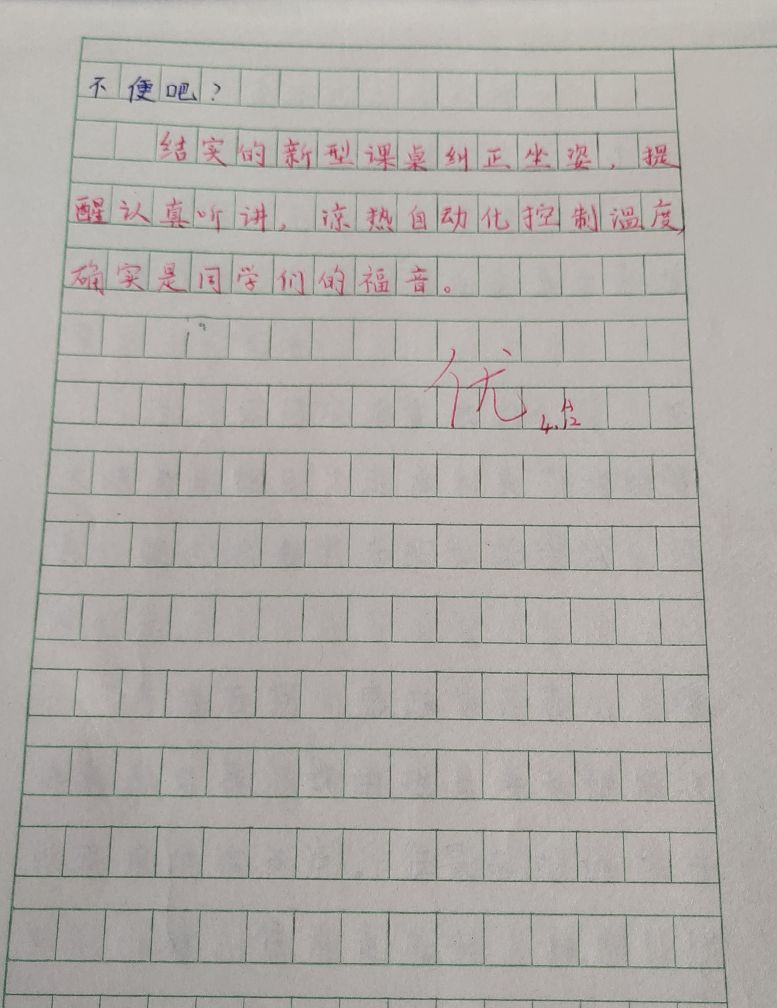 不便吧？
结实的新型课桌纠正坐姿，提
醒认真听讲，凉热自动化控制温度，
确实是同学们的福音。
优